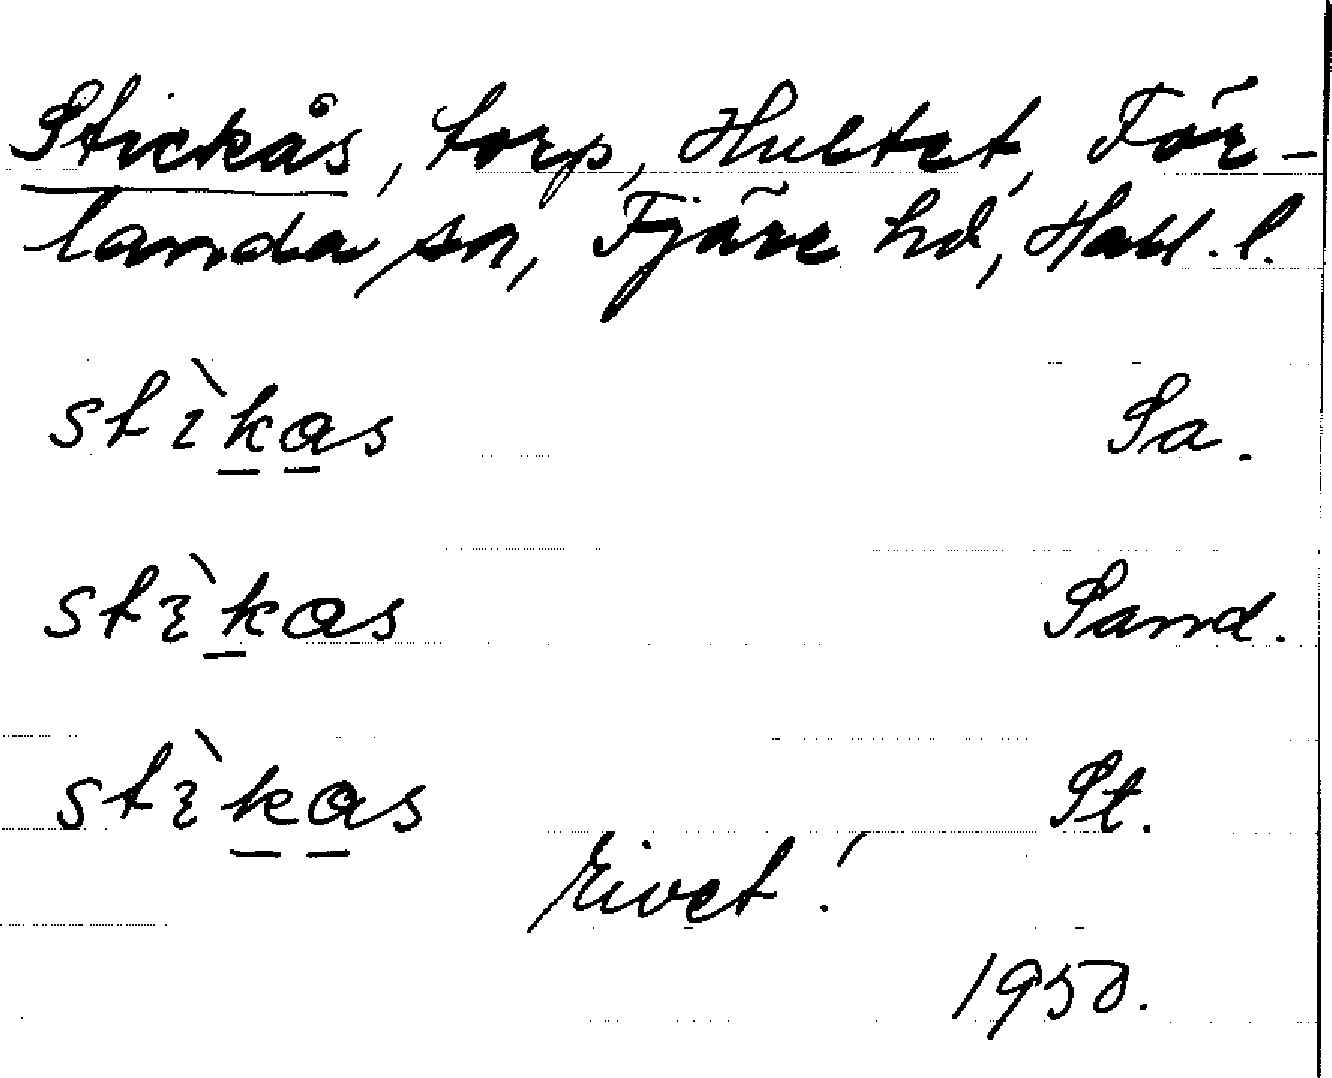 Stickås, torp, Hultet, För-
landa sn, Fjäre hd, Hall. l.
stìkas Sa.
stìkas Sand.
stìkas St.
rivet!
1950.